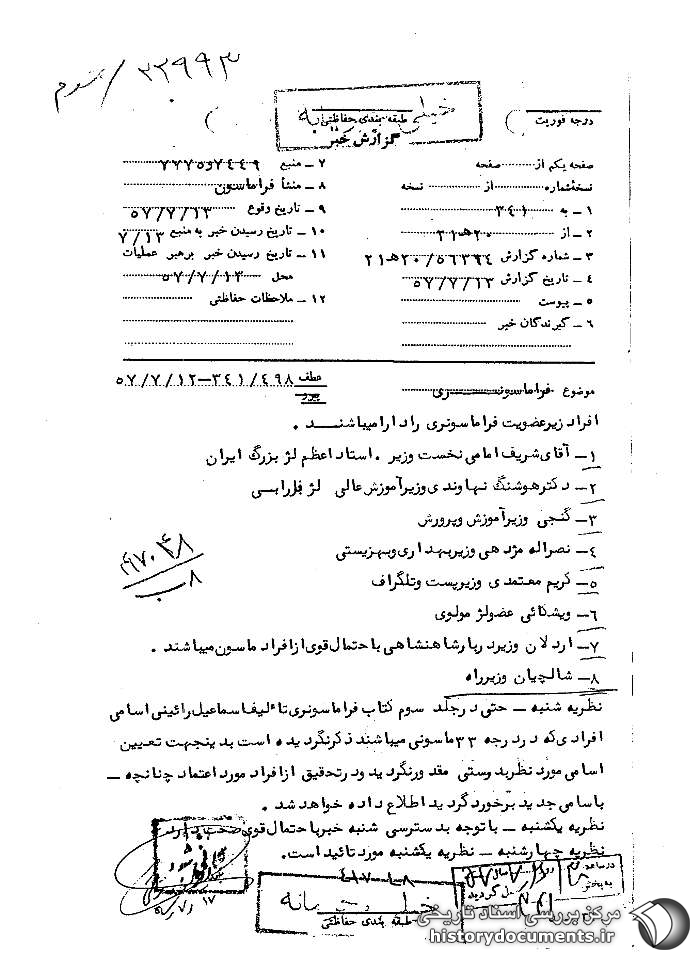 ۲۲۹۹۳ / سوم
خیلی
طبقه بندی حفاظتی
گزارش خبر
درجه فوریت
صفحه یکم از صفحه
نسخه شماره از نسخه
۱ - به ۳۴۱
۲ - از ۲۰ هـ ۲۱
۳ - شماره گزارش ۲۰/۵۶۳۹۴ هـ ۲۱
۴ - تاریخ گزارش ۵۷/۷/۱۳
۵ - پیوست
۶ - گیرندگان خبر
۷ - منبع ۷۴۴۹ و ۷۷۷۵
۸ - منشأ فراماسون
۹ - تاریخ وقوع ۵۷/۷/۱۳
۱۰ - تاریخ رسیدن خبر به منبع ۷/۱۳
۱۱ - تاریخ رسیدن خبر برهبر عملیات
محل ۵۷/۷/۱۳
۱۲ - ملاحظات حفاظتی
موضوع فراماسونری
عطف ۳۴۱/۴۹۸-۵۷/۷/۱۲
پیرو
افراد زیر عضویت فراماسونری را دارا میباشند .
۱- آقای شریف امامی نخست وزیر . استاد اعظم لژ بزرگ ایران
۲- دکتر هوشنگ نهاوندی وزیر آموزش عالی لژ فارابی
۳- گنجی وزیر آموزش و پرورش
۴- نصراله مژدهی وزیر بهداری و بهزیستی
۵- کریم معتمدی وزیر پست و تلگراف
۶- ویشکائی عضو لژ مولوی
۷- اردلان وزیر دربار شاهنشاهی با احتمال قوی از افراد ماسون میباشند .
۸- شالچیان وزیر راه
نظریه شنبه - حتی در جلد سوم کتاب فراماسونری تألیف اسماعیل رائینی اسامی
افرادی که در درجه ۳۳ ماسونی میباشند ذکر نگردیده است بدینجهت تعیین
اسامی مورد نظر بدوستی مقدور نگردید و در تحقیق از افراد مورد اعتماد چنانچه -
باسامی جدید برخورد گردید اطلاع داده خواهد شد .
نظریه یکشنبه - با توجه به دسترسی شنبه خبر با احتمال قوی صحت دارد
نظریه چهارشنبه - نظریه یکشنبه مورد تائید است.
خیلی محرمانه
طبقه بندی حفاظتی
مرکز بررسی اسناد تاریخی
historydocuments.ir